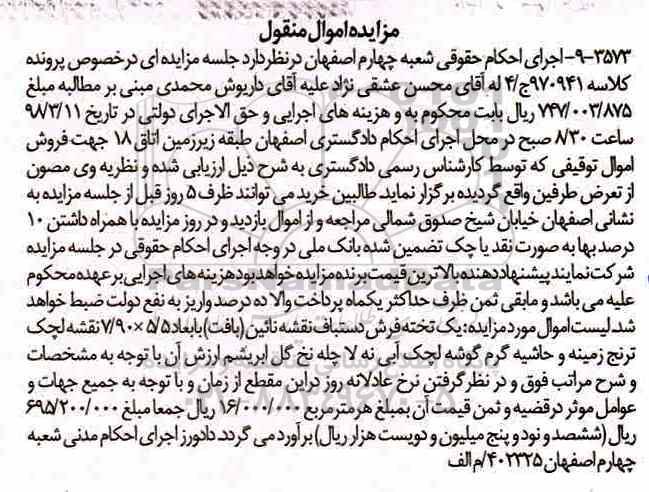 مزایده اموال منقول
۳۵۷۳-۹- اجرای احکام حقوقی شعبه چهارم اصفهان در نظر دارد جلسه مزایده ای در خصوص پرونده
کلاسه ۹۷۰۹۴۱ج/۴ له آقای محسن عشقی نژاد علیه آقای داریوش محمدی مبنی بر مطالبه مبلغ
۷۴۷/۰۰۳/۸۷۵ ریال بابت محکوم به و هزینه های اجرایی و حق الاجرای دولتی در تاریخ ۹۸/۳/۱۱
ساعت ۸/۳۰ صبح در محل اجرای احکام دادگستری اصفهان طبقه زیرزمین اتاق ۱۸ جهت فروش
اموال توقیفی که توسط کارشناس رسمی دادگستری به شرح ذیل ارزیابی شده و نظریه وی مصون
از تعرض طرفین واقع گردیده برگزار نماید. طالبین خرید می توانند ظرف ۵ روز قبل از جلسه مزایده به
نشانی اصفهان خیابان شیخ صدوق شمالی مراجعه و از اموال بازدید و در روز مزایده با همراه داشتن ۱۰
درصد بها به صورت نقد یا چک تضمین شده بانک ملی در وجه اجرای احکام حقوقی در جلسه مزایده
شرکت نمایند پیشنهاد دهنده بالاترین قیمت برنده مزایده خواهد بود هزینه های اجرایی بر عهده محکوم
علیه می باشد و مابقی ثمن ظرف حداکثر یکماه پرداخت والا ده درصد واریز به نفع دولت ضبط خواهد
شد. لیست اموال مورد مزایده: یک تخته فرش دستباف نقشه نائین (بافت) با ابعاد ۵/۵×۷/۹۰ نقشه لچک
ترنج زمینه و حاشیه گرم گوشه لچک آبی نه لا چله نخ گل ابریشم ارزش آن با توجه به مشخصات
و شرح مراتب فوق و در نظر گرفتن نرخ عادلانه روز در این مقطع از زمان و با توجه به جمیع جهات و
عوامل موثر در قضیه و ثمن قیمت آن بمبلغ هر متر مربع ۱۶/۰۰۰/۰۰۰ ریال جمعا مبلغ ۶۹۵/۲۰۰/۰۰۰
ریال (ششصد و نود و پنج میلیون و دویست هزار ریال) برآورد می گردد. دادورز اجرای احکام مدنی شعبه
چهارم اصفهان ۴۰۲۳۲۵/م الف